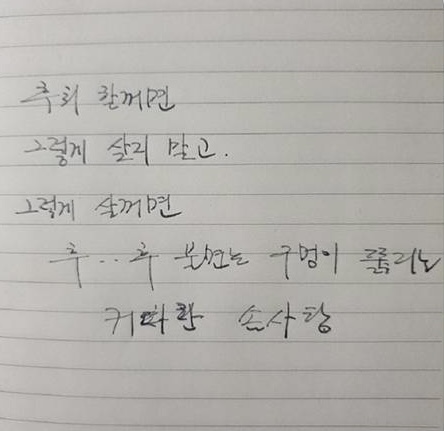 후회 할꺼면
그렇게 살지 말고.
그렇게 살꺼면
후...후 불면는 구멍이 뚫리는
커따란 솜사탕